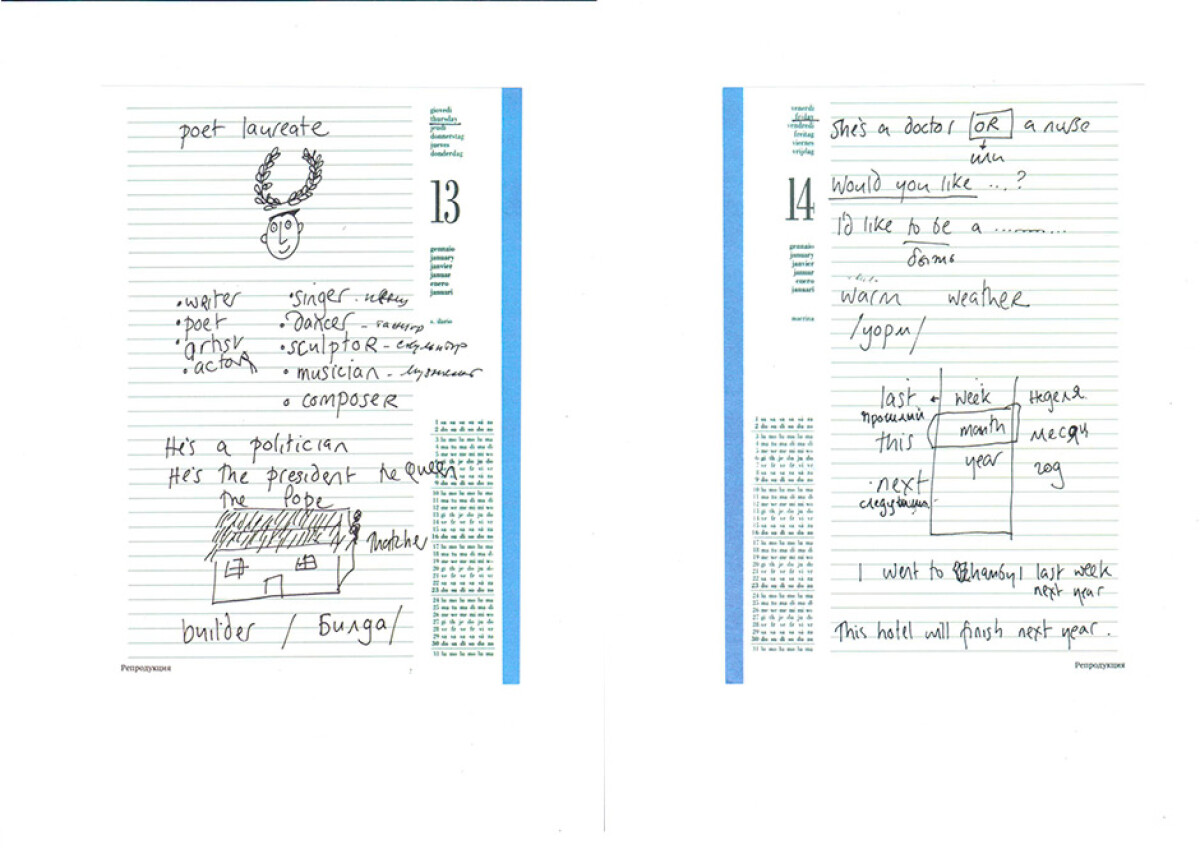 poet laureate
giovedì
thursday
jeudi
donnerstag
jueves
donderdag
13
gennaio
january
janvier
januar
enero
januari
s. ilario
• writer
• poet
• artist
• actor
• singer - певец
• dancer - танцор
• sculptoR - скульптор
• musician - музыкант
• composer
He's a politician
He's the president the Queen
the Pope
thatcher
builder / Билда/
Репродукция
venerdì
friday
vendredi
freitag
viernes
vrijdag
14
gennaio
january
janvier
januar
enero
januari
martina
She's a doctor OR a nurse
или
Would you like ...?
I'd like to be a ..........
быть
warm weather
/уорм/
last week неделя
прошлый
this month месяц
year год
next
следующий
I went to last week
next year
This hotel will finish next year.
Репродукция